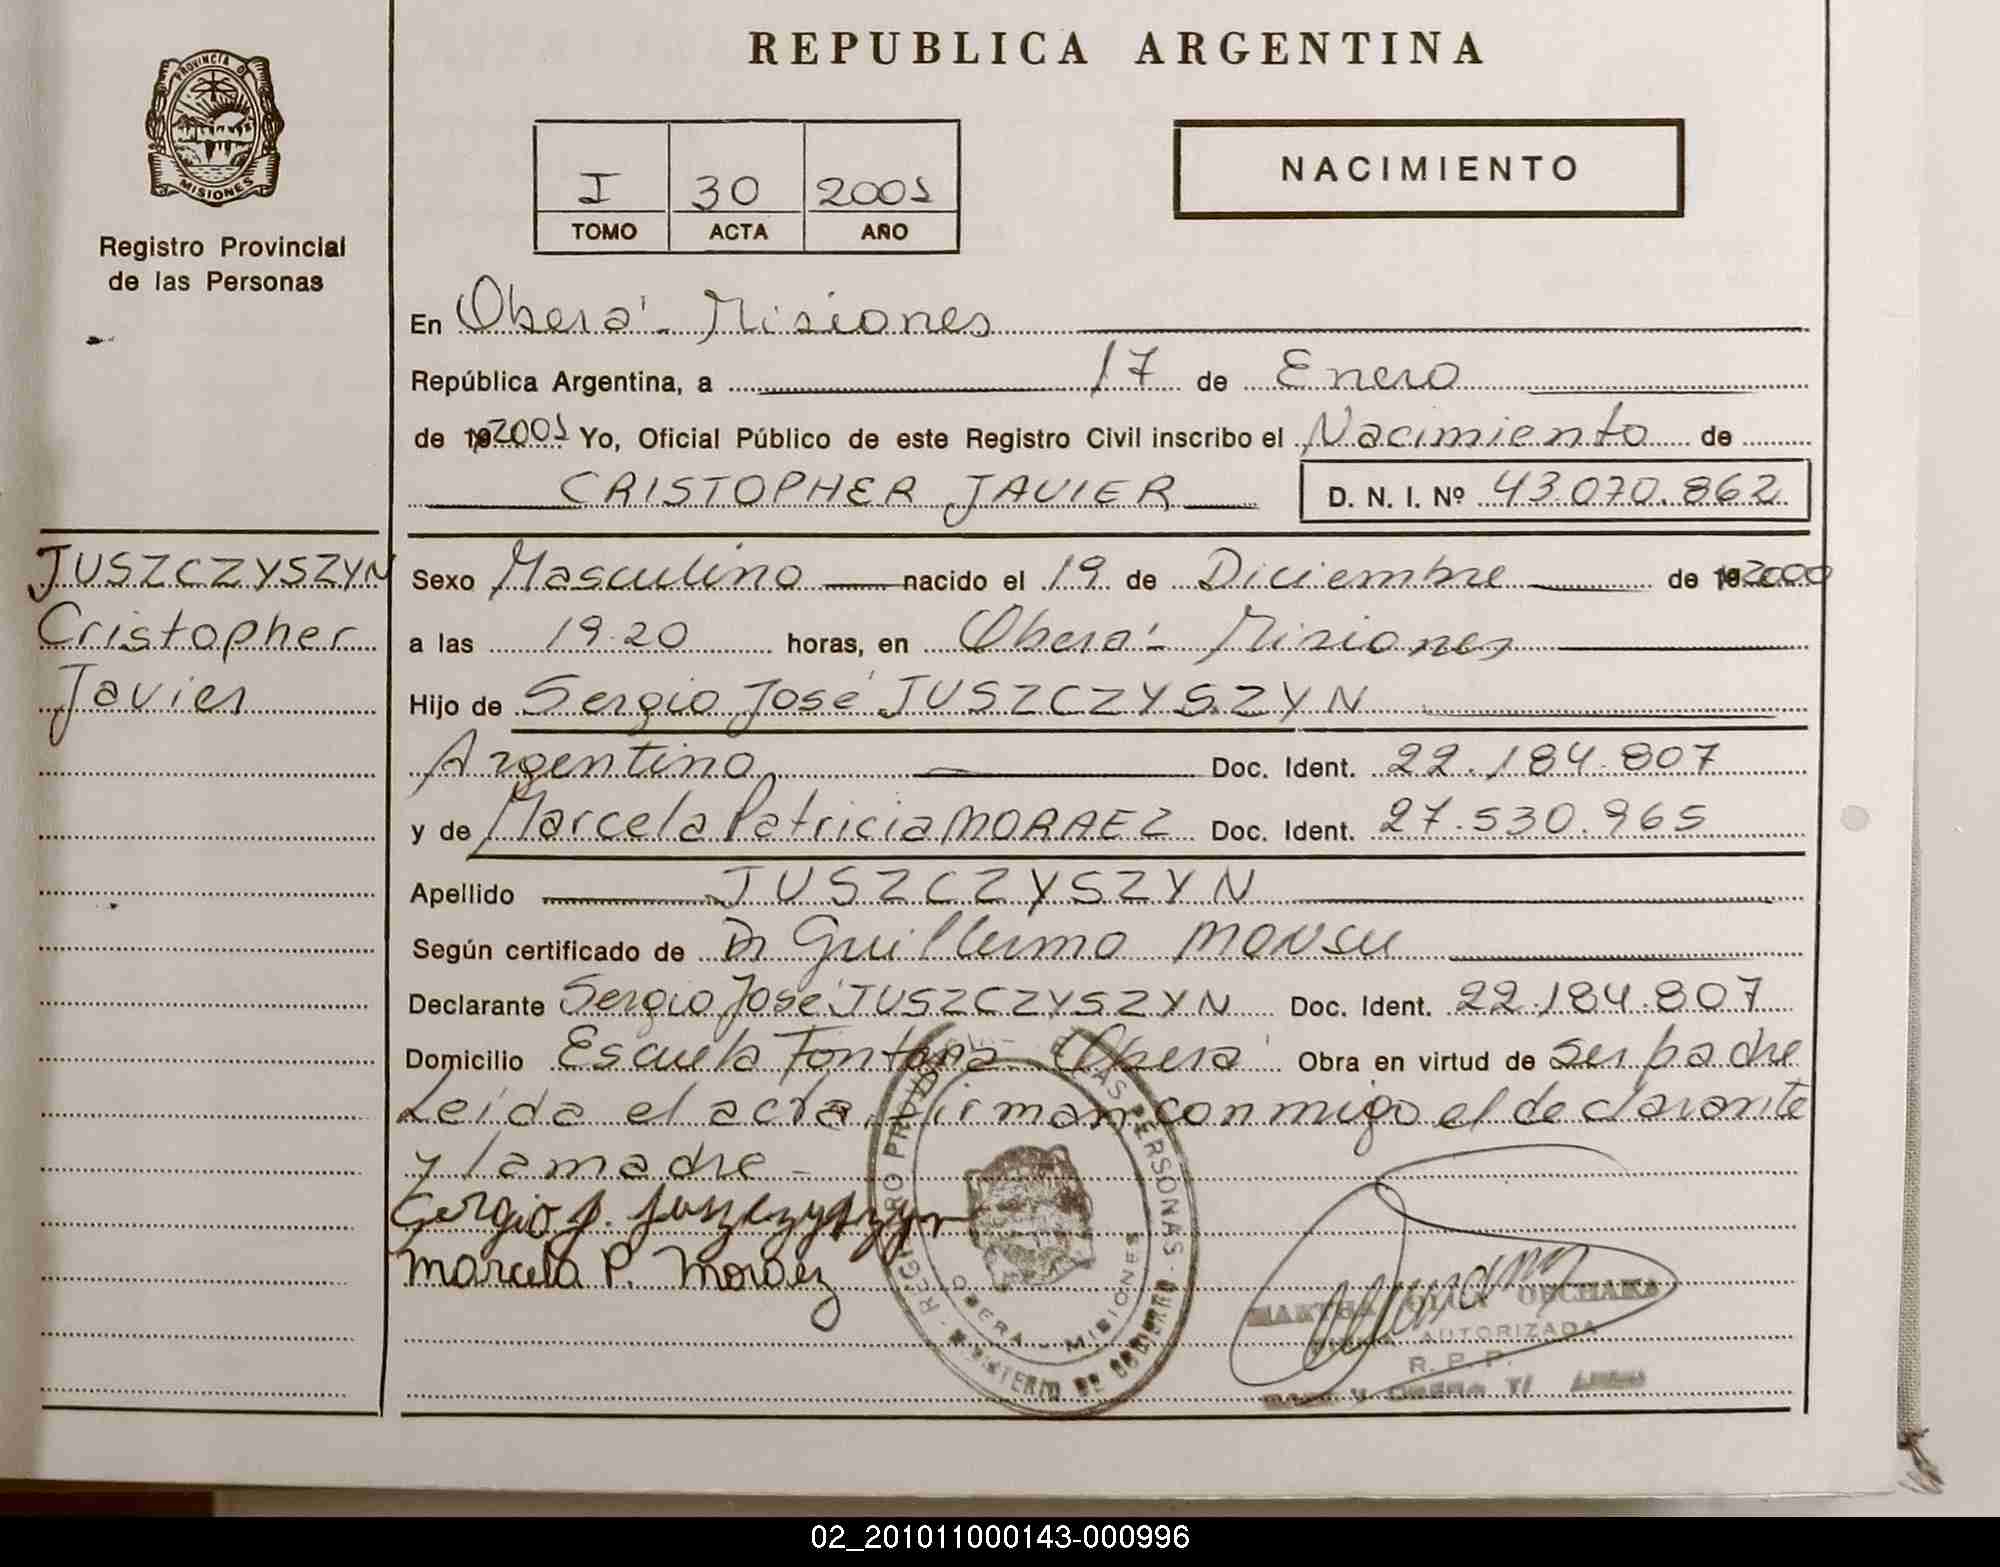 REPUBLICA ARGENTINA
PROVINCIA DE
MISIONES
Registro Provincial
de las Personas
I 30 2001
TOMO ACTA AÑO
NACIMIENTO
En Oberá - Misiones
República Argentina, a 17 de Enero
de 19 2001 Yo, Oficial Público de este Registro Civil inscribo el Nacimiento de
CRISTOPHER JAVIER D. N. I. Nº 43.070.862
JUSZCZYSZYN
Cristopher
Javier
Sexo Masculino nacido el 19 de Diciembre de 19 2000
a las 19.20 horas, en Oberá - Misiones
Hijo de Sergio José JUSZCZYSZYN
Argentino Doc. Ident. 22.184.807
y de Marcela Patricia MORAEZ Doc. Ident. 27.530.965
Apellido JUSZCZYSZYN
Según certificado de Dr Guillermo MONSU
Declarante Sergio José JUSZCZYSZYN Doc. Ident. 22.184.807
Domicilio Escuela Fontana Oberá Obra en virtud de ser padre
Leída el acta, firman conmigo el declarante
y la madre -
Sergio J. Juszczyszyn
Marcela P. Moraez
OBERA - MISIONES
MARTHA OLGA
AUTORIZADA
R. P. P.
02_201011000143-000996